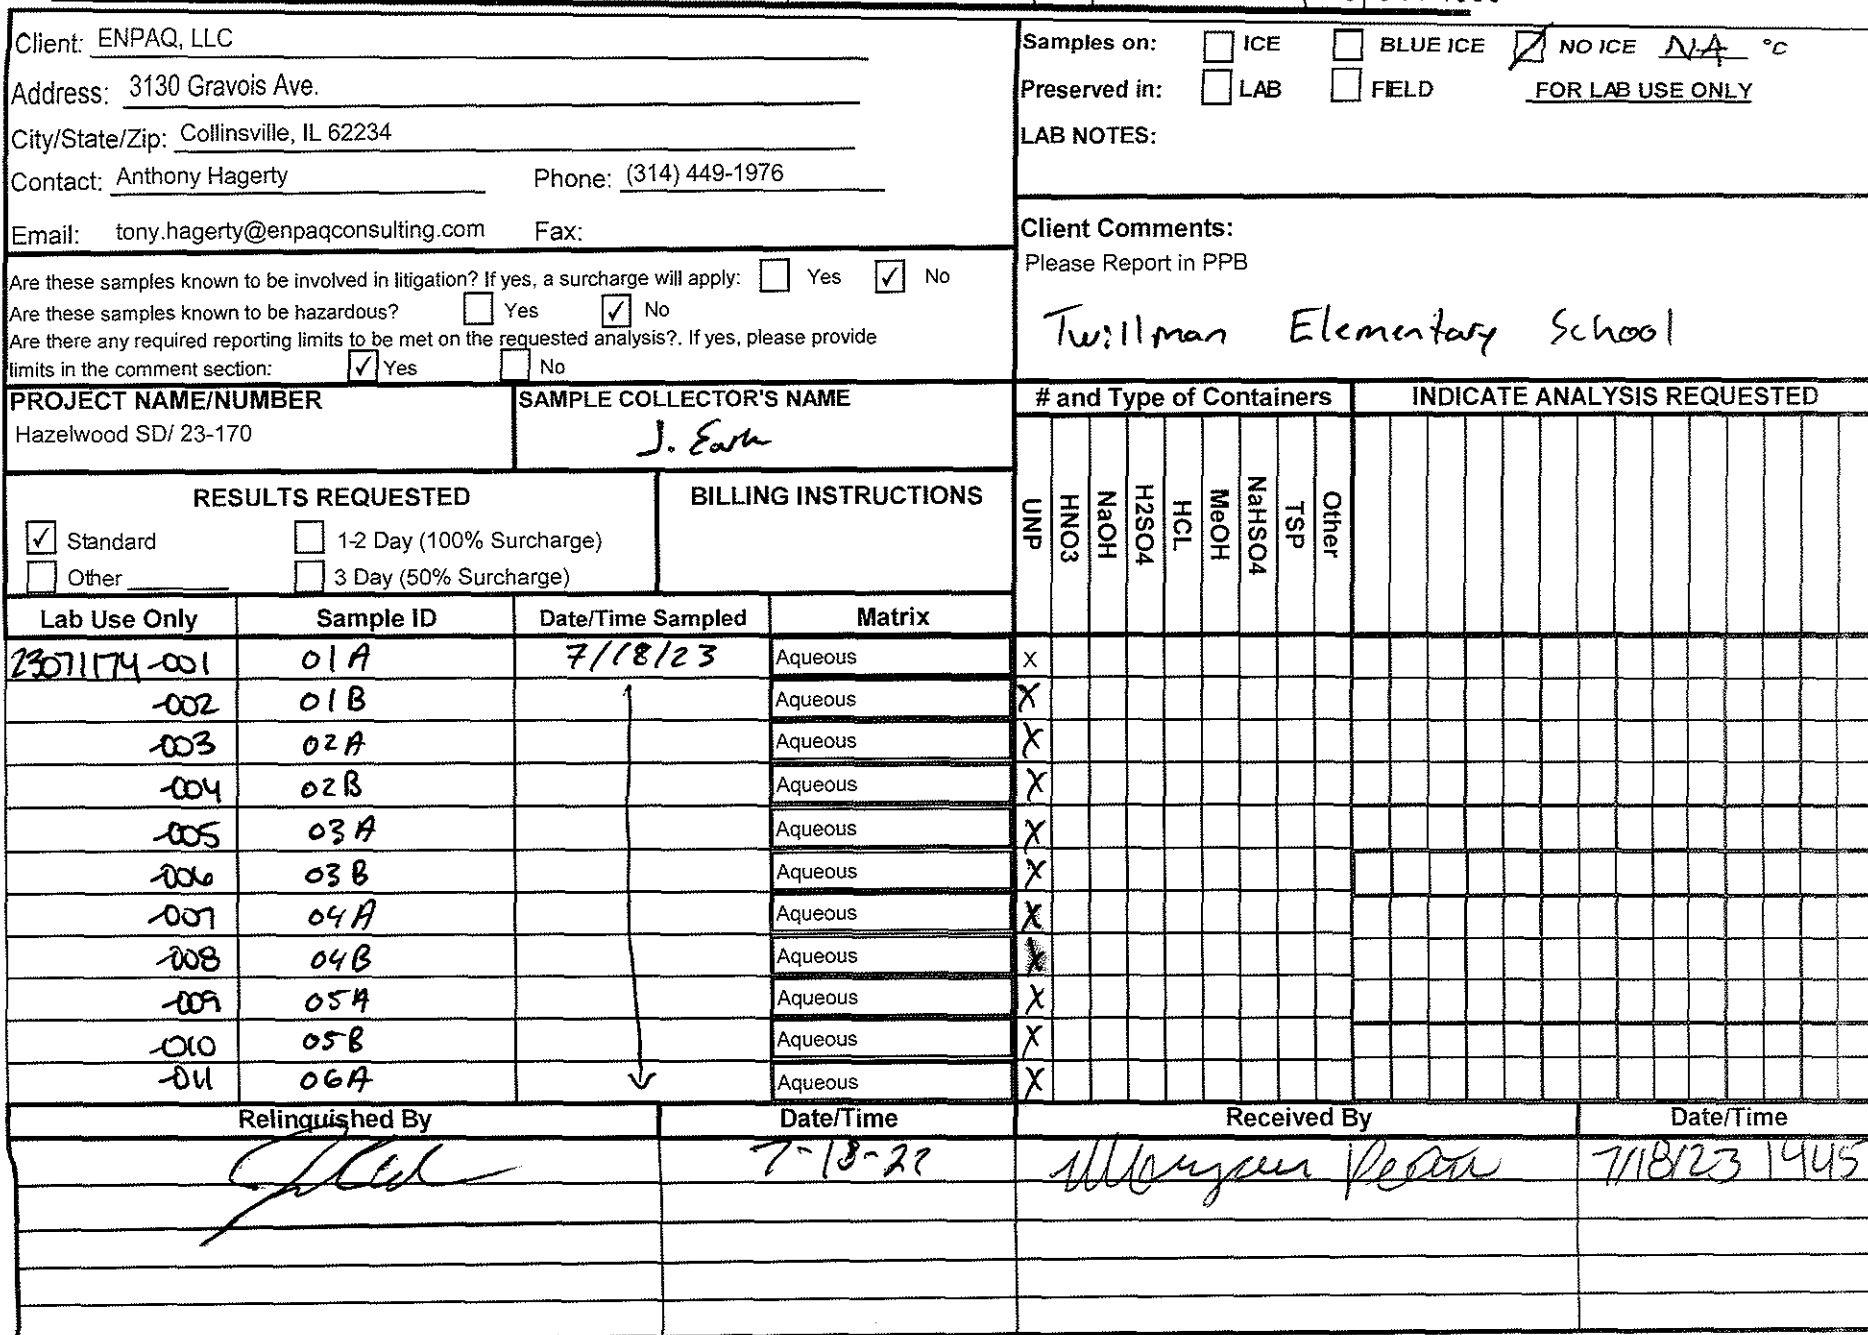 Client: ENPAQ, LLC
Address: 3130 Gravois Ave.
City/State/Zip: Collinsville, IL 62234
Contact: Anthony Hagerty Phone: (314) 449-1976
Email: tony.hagerty@enpaqconsulting.com Fax:
Samples on: ICE BLUE ICE NO ICE NA °C
Preserved in: LAB FIELD FOR LAB USE ONLY
LAB NOTES:
Client Comments:
Please Report in PPB
Twillman Elementary School
Are these samples known to be involved in litigation? If yes, a surcharge will apply: Yes ✓ No
Are these samples known to be hazardous? Yes ✓ No
Are there any required reporting limits to be met on the requested analysis?. If yes, please provide
limits in the comment section: ✓ Yes No
PROJECT NAME/NUMBER SAMPLE COLLECTOR'S NAME
Hazelwood SD/ 23-170 J.
# and Type of Containers INDICATE ANALYSIS REQUESTED
RESULTS REQUESTED BILLING INSTRUCTIONS
✓ Standard 1-2 Day (100% Surcharge)
Other 3 Day (50% Surcharge)
UNP
HNO3
NaOH
H2SO4
HCL
MeOH
NaHSO4
TSP
Other
Lab Use Only Sample ID Date/Time Sampled Matrix
23071174-001 01A 7/18/23 Aqueous X
-002 01B Aqueous X
-003 02A Aqueous X
-004 02B Aqueous X
-005 03A Aqueous X
-006 03B Aqueous X
-007 04A Aqueous X
-008 04B Aqueous X
-009 05A Aqueous X
-010 05B Aqueous X
-011 06A Aqueous X
Relinquished By Date/Time Received By Date/Time
Morgan 7/18/23 1445